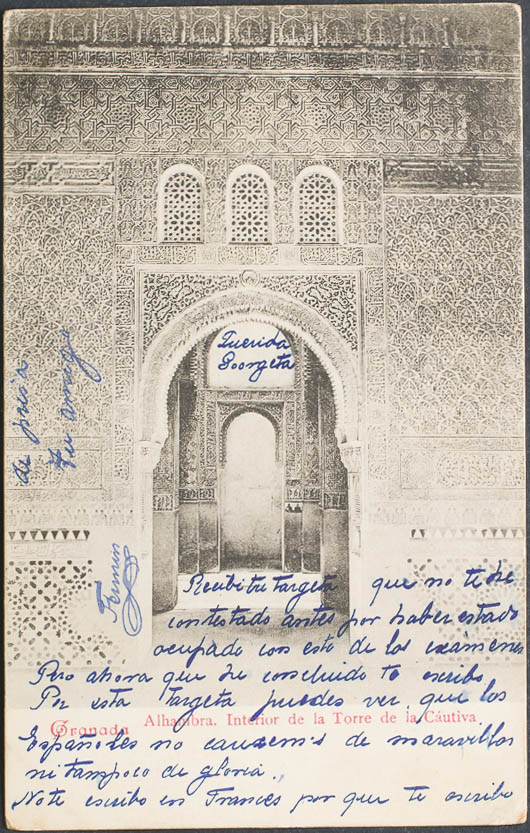 Querida
Georgeta
Recibi tu targeta que no te he
contestado antes por haber estado
ocupado con esto de los exámenes
Pero ahora que he concluido te escribo
Por esta targeta puedes ver que los
Granada Alhambra. Interior de la Torre de la Cáutiva
Españoles no carecemos de maravillas
ni tampoco de gloria.
No te escribo en Frances por que te escribo
de prisa
Tu amigo
Fermin